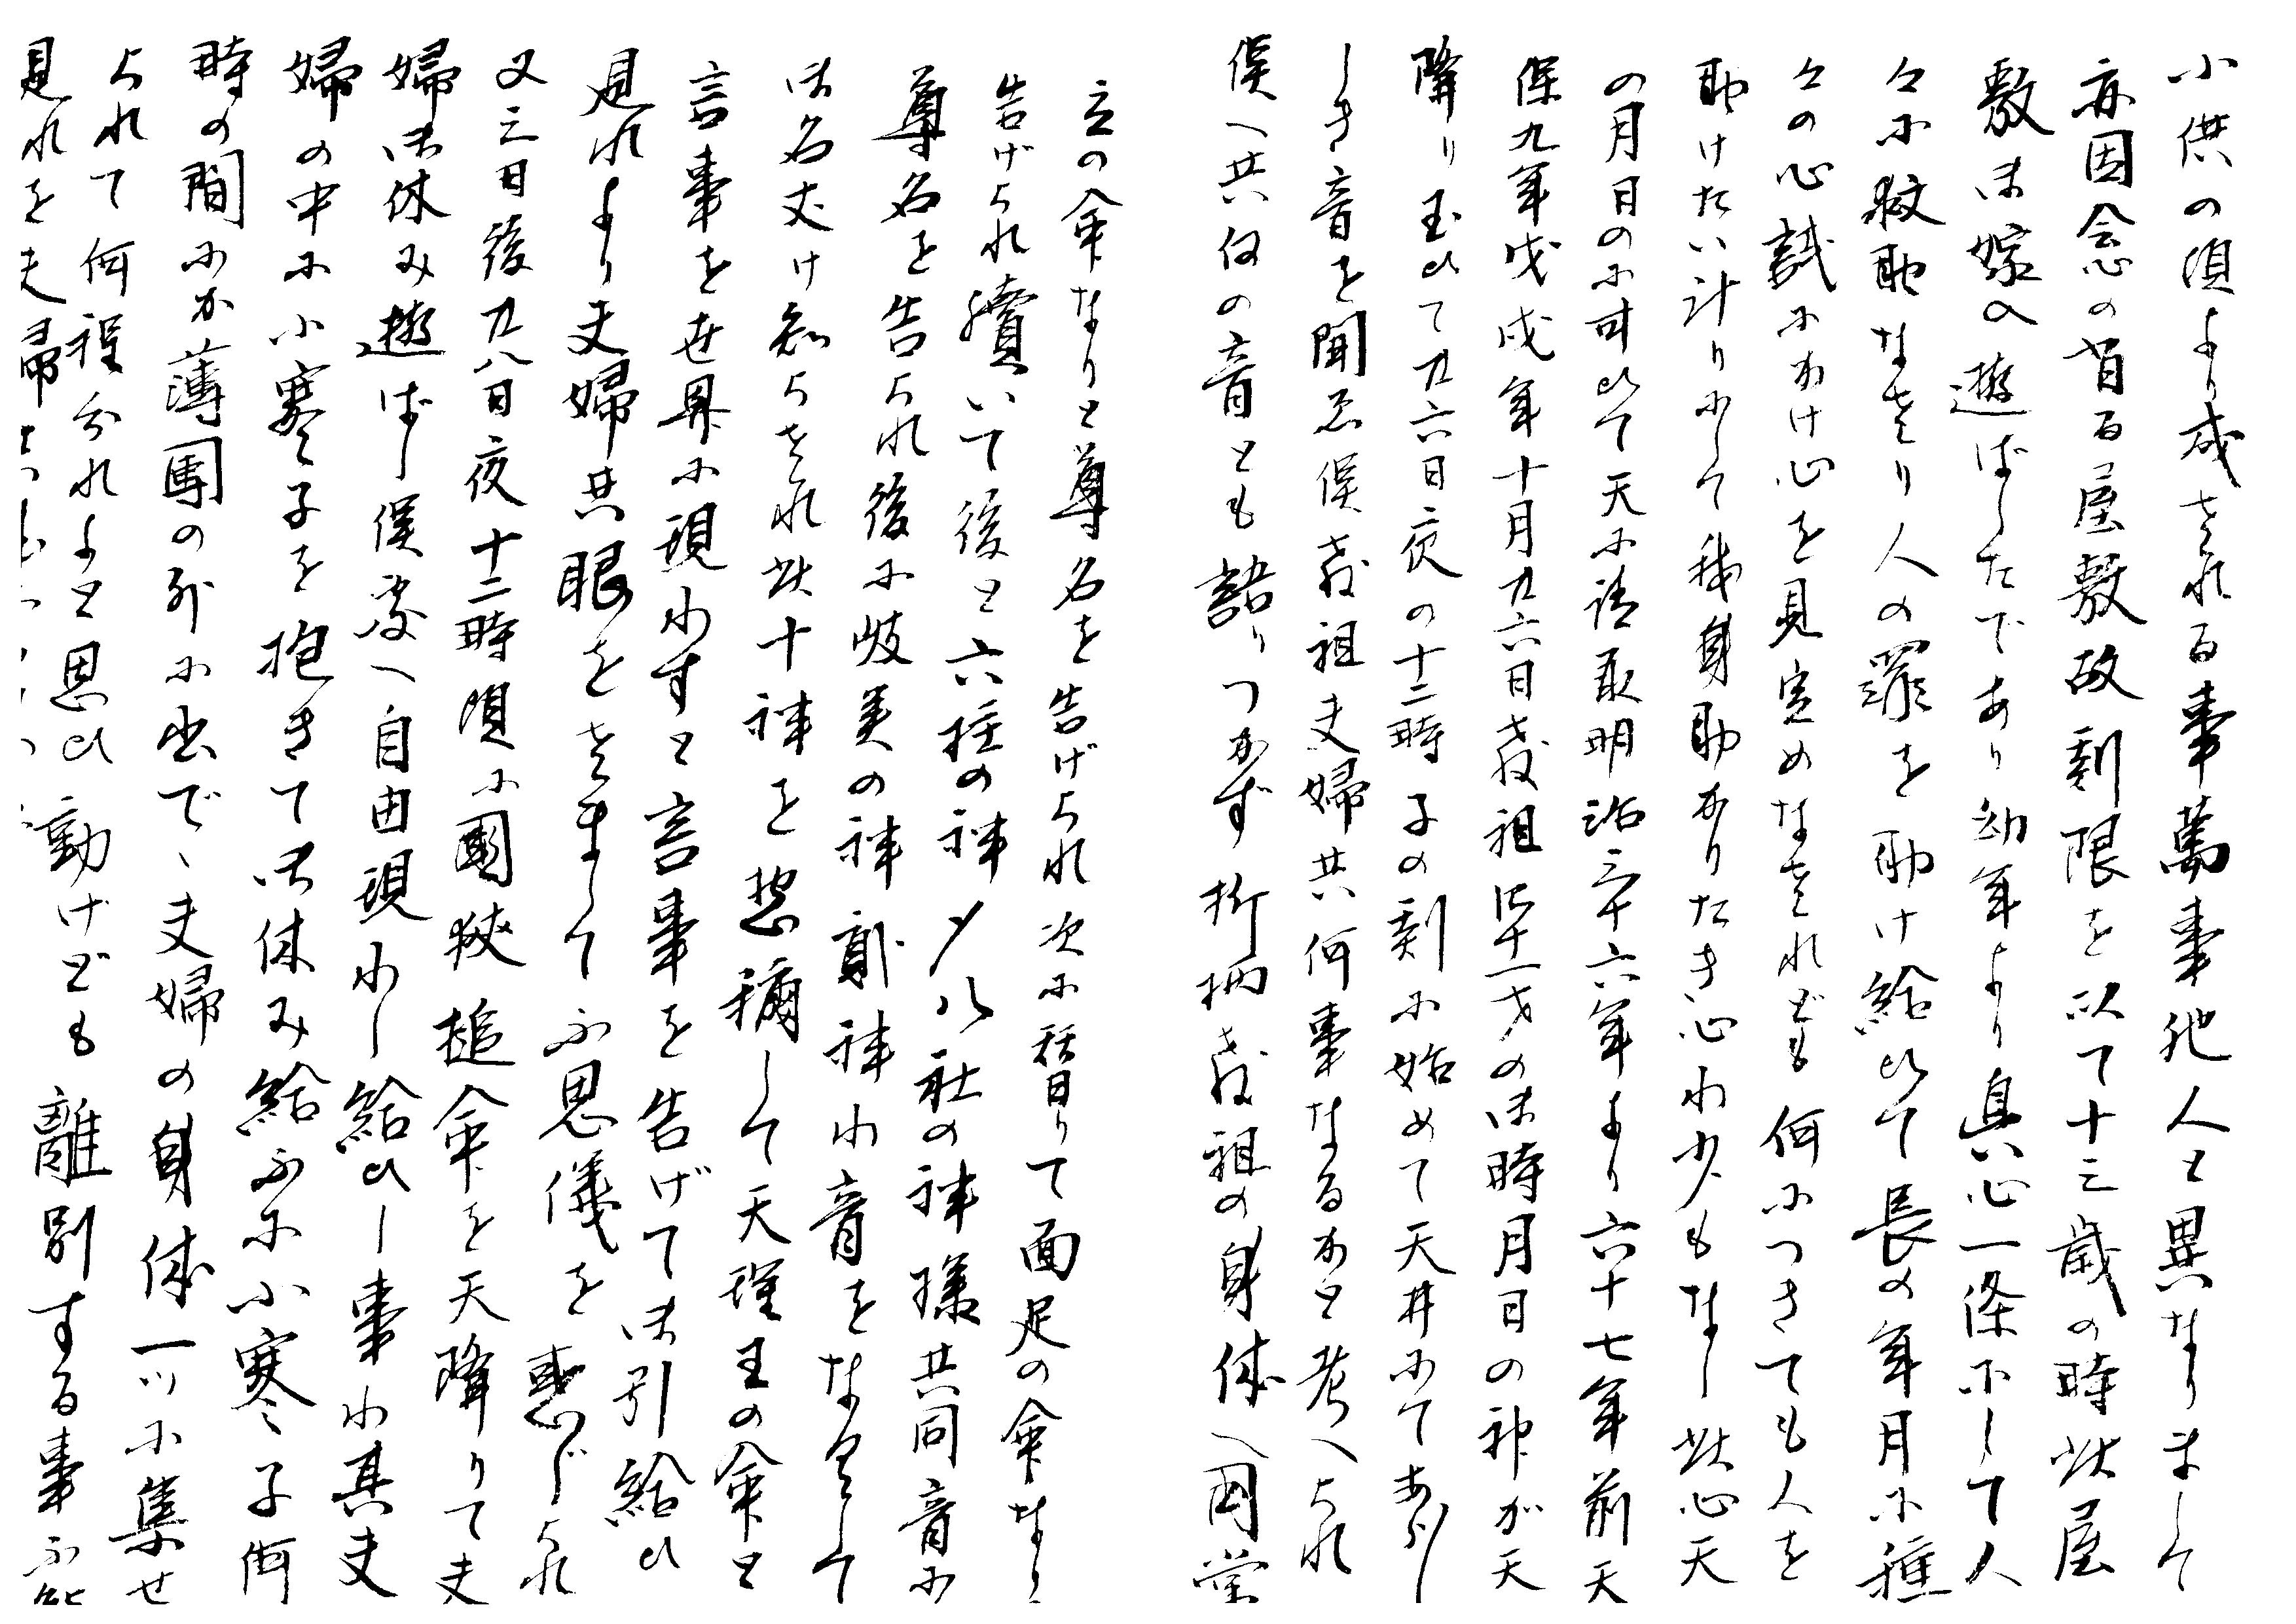 小供の頃より成される事萬事他人と異なりまして
亦因念の有る屋敷故刻限を以て十三歳の時此屋
敷は嫁入遊ばしたであり幼年より真心一條にして人
々に救助なをり人の罪を助け給ひて長の年月に種
々の心試にかけ心を見定めなされども何につきても人を
助けたい計りにして我身助かりたき心わ少もなし此心天
の月日のに叶ひて天に請取明治三十六年より六十七年前天
保九年戊戌年十月廿六日教祖四十一才の御時月日の神が天
降り玉ひて廿六日夜の十二時子の刻に始めて天井にてあやし
しき音を聞ゑ候教祖夫婦共何事なるかと考へられ
候へ共何の音とも語りつかず折柄教祖の身体へ国常
立の命なりと尊名を告げられ次に替りて面足の命なり
告げられ續いて後と六柱の神〆八社の神様共同音に
尊名を告られ後に岐美の神 神わ音をなくして
御名丈け知らされ此十神を惣稱して天理王の命と
言事を世界に現わすと言事を告げて御引給ひ
是れより夫婦共眼をさまして不思儀を感じられ
又三日後廿八日夜十二時頃に國狭槌命を天降りて夫
婦御休み遊ばし候處へ自由現わし給ひし事わ其夫
婦の中に小寒子を抱きて御休み給ふに小寒子何
時の間にか薄團の外に出で、夫婦の身体一ツに集せ
られて何程分れよと思ひ動けども離別する事不能
是れを夫婦